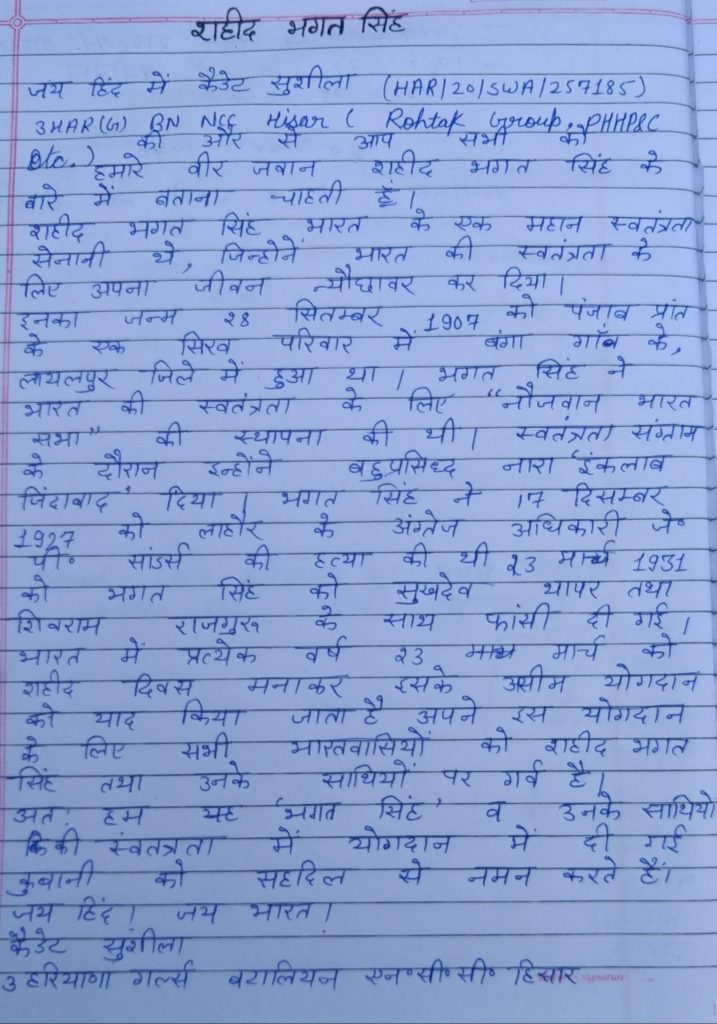 शहीद भगत सिंह
जय हिंद में कैडेट सुशीला (HAR/20/SWA/257185)
3HAR(G) BN NCC Hisar ( Rohtak Group, PHHP&C
etc.) की और से आप सभी को
हमारे वीर जवान शहीद भगत सिंह के
बारे में बताना चाहती हूँ।
शहीद भगत सिंह भारत के एक महान स्वतंत्रता
सेनानी थे, जिन्होनें भारत की स्वतंत्रता के
लिए अपना जीवन न्यौछावर कर दिया।
इनका जन्म 28 सितम्बर 1907 को पंजाब प्रांत
के एक सिख परिवार में बंगा गाँव के,
लायलपुर जिले में हुआ था। भगत सिंह ने
भारत की स्वतंत्रता के लिए "नौजवान भारत
सभा" की स्थापना की थी। स्वतंत्रता संग्राम
के दौरान इन्होंने बहुप्रसिध्द नारा 'इंकलाब
जिंदाबाद' दिया। भगत सिंह ने 17 दिसम्बर
1927 को लाहौर के अंग्रेज अधिकारी जे॰
पी॰ सांडर्स की हत्या की थी 23 मार्च 1931
को भगत सिंह को सुखदेव थापर तथा
शिवराम राजगुरू के साथ फांसी दी गई।
भारत में प्रत्येक वर्ष 23 मार्च को
शहीद दिवस मनाकर इसके असीम योगदान
को याद किया जाता है अपने इस योगदान
के लिए सभी भारतवासियों को शहीद भगत
सिंह तथा उनके साथियों पर गर्व है।
अत: हम यह 'भगत सिंह' व उनके साथियो
की स्वंतत्रता में योगदान में दी गई
कुबानी को सहदिल से नमन करते हैं।
जय हिंद। जय भारत।
कैडेट सुशीला
3 हरियाणा गर्ल्स बटालियन एन॰सी॰सी॰ हिसार